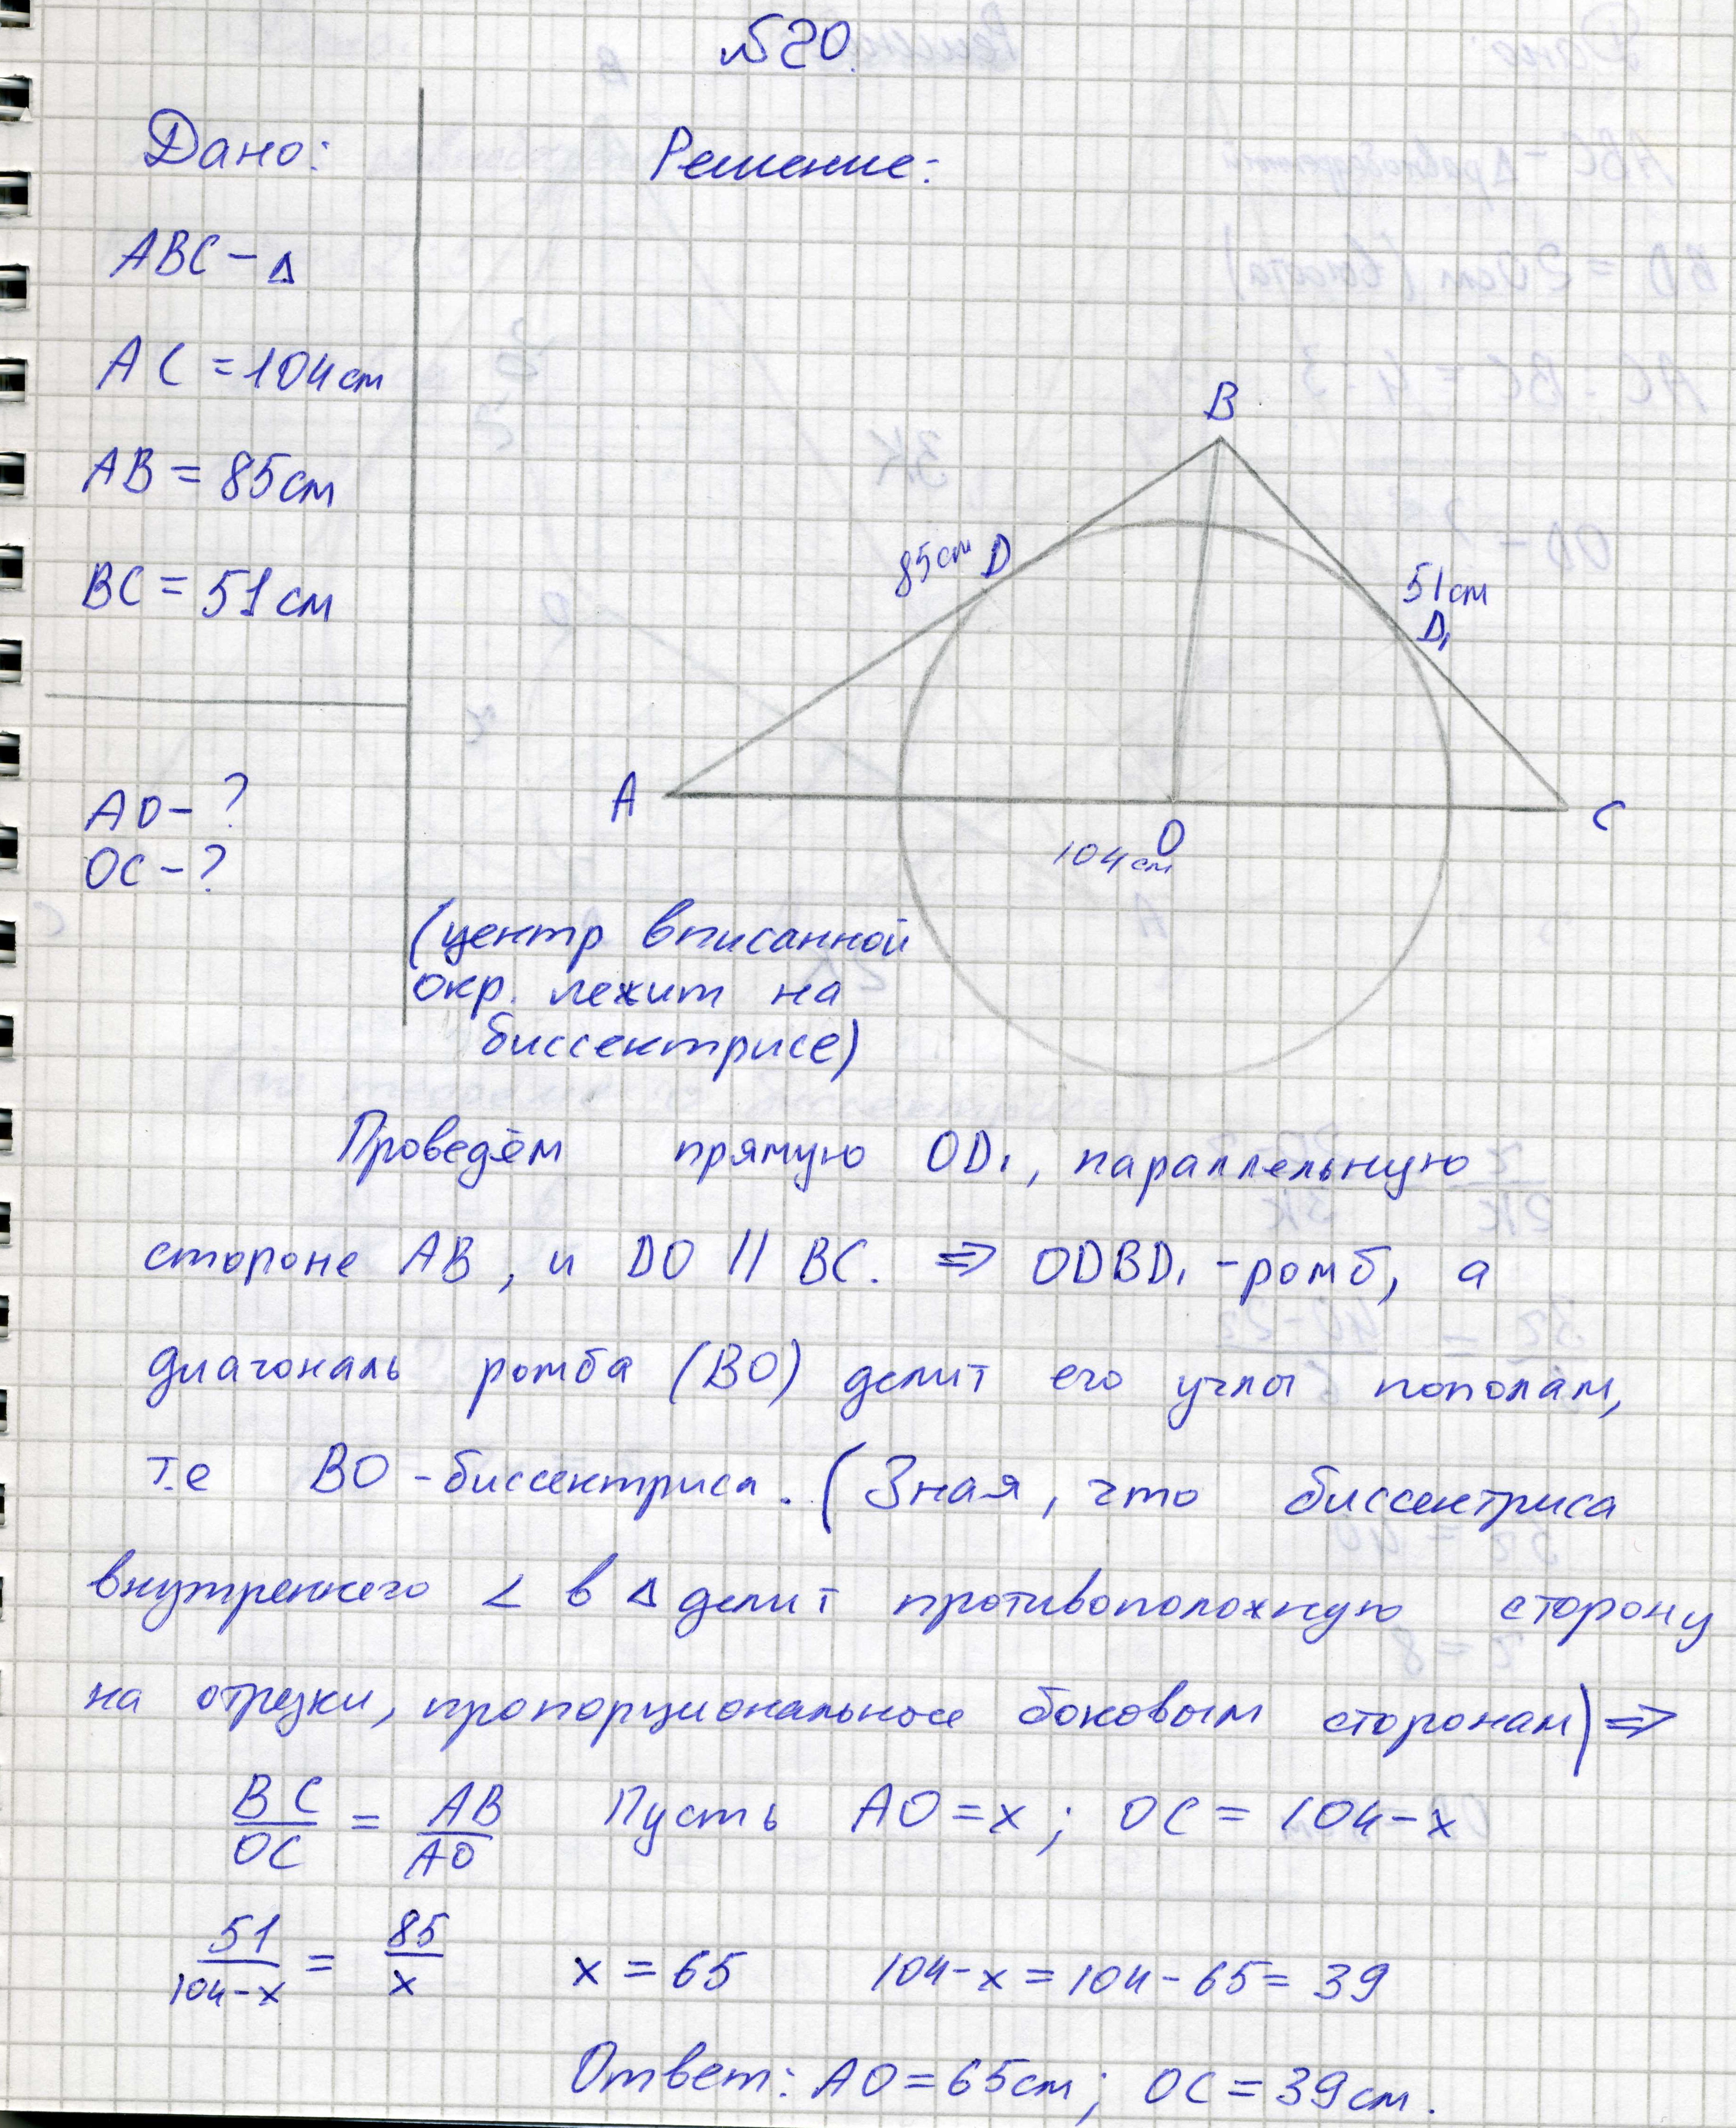 №20.
Дано:
Решение:
ABC - Δ
AC = 104см
AB = 85см
BC = 51см
AO - ?
OC - ?
B
85см D
51см
D₁
A
O
C
104см
(центр вписанной
окр. лежит на
биссектрисе)
Проведём прямую OD₁, параллельную
стороне AB, и DO || BC. => ODBD₁ - ромб, а
диагональ ромба (BO) делит его углы пополам,
т.е BO - биссектриса. (Зная, что биссектриса
внутреннего ∠ в Δ делит противоположную сторону
на отрезки, пропорциональные боковым сторонам) =>
BC/OC = AB/AO Пусть AO = x; OC = 104-x
51/104-x = 85/x x = 65 104-x = 104-65 = 39
Ответ: AO = 65см; OC = 39см.